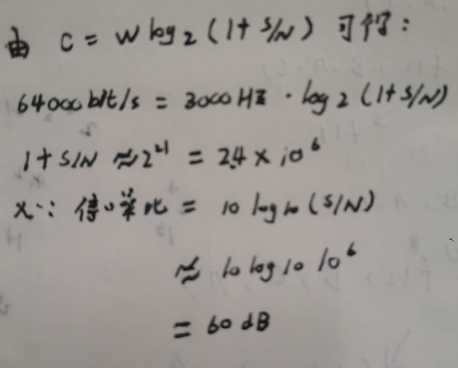 由 C = W log₂ (1+S/N) 可得:
64000 bit/s = 3000HZ · log 2 (1+S/N)
1+S/N ≈ 2²¹ = 2.4 × 10⁶
又∵ 信噪比 = 10 log₁₀ (S/N)
≈ 10 log 10 10⁶
= 60 dB